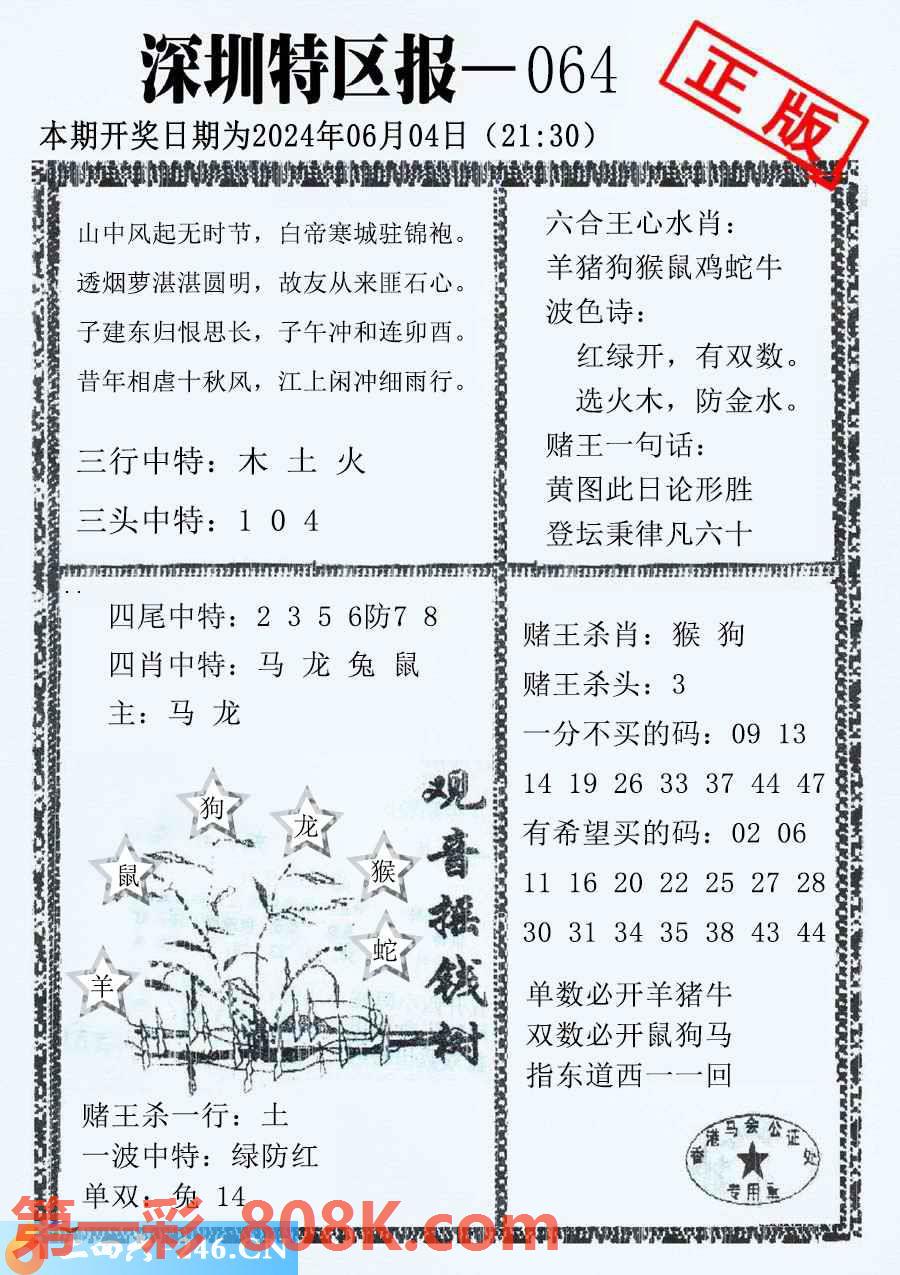 深圳特区报－064
正版
本期开奖日期为2024年06月04日（21:30）
山中风起无时节，白帝寒城驻锦袍。
透烟萝湛湛圆明，故友从来匪石心。
子建东归恨思长，子午冲和连卯酉。
昔年相虐十秋风，江上闲冲细雨行。
三行中特：木 土 火
三头中特：1 0 4
六合王心水肖：
羊猪狗猴鼠鸡蛇牛
波色诗：
红绿开，有双数。
选火木，防金水。
赌王一句话：
黄图此日论形胜
登坛秉律凡六十
四尾中特：2 3 5 6防7 8
四肖中特：马 龙 兔 鼠
主：马 龙
狗
龙
鼠
猴
蛇
羊
观音摇钱树
赌王杀一行：土
一波中特：绿防红
单双：兔 14
赌王杀肖：猴 狗
赌王杀头：3
一分不买的码：09 13
14 19 26 33 37 44 47
有希望买的码：02 06
11 16 20 22 25 27 28
30 31 34 35 38 43 44
单数必开羊猪牛
双数必开鼠狗马
指东道西一一回
香港马会公证处
专用章
第一彩.808K.com
246.CN